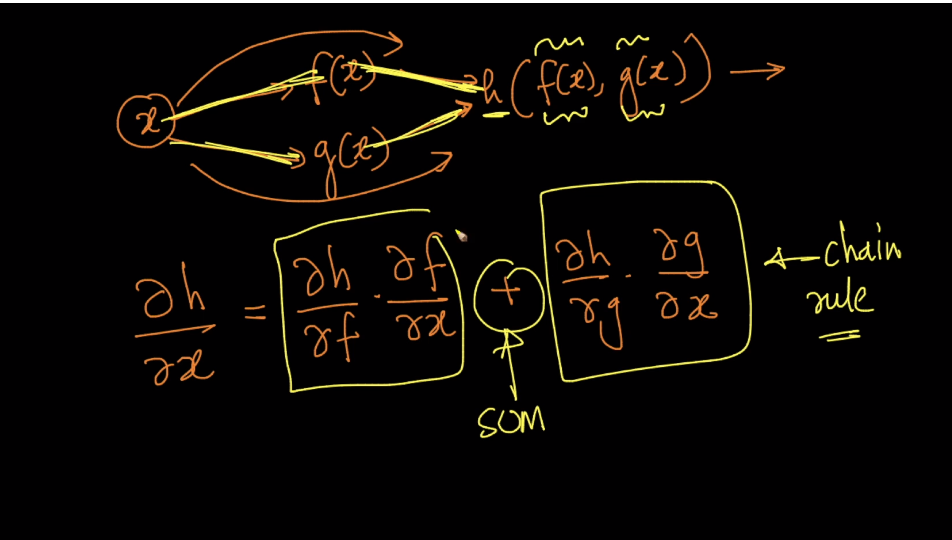 f(x)
x
h(f(x), g(x))
g(x)
∂h/∂x = ∂h/∂f · ∂f/∂x + ∂h/∂g · ∂g/∂x
chain
rule
SUM